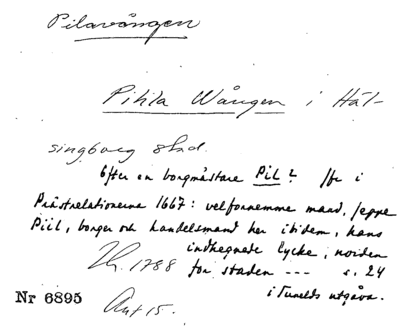 Pilavången
Pihla Wången i Häl-
singborg stad.
Efter en borgmästare Pil? Jfr i
Prästrelationerna 1667: velfornemme mand, Jeppe
Piil, borger och handelsmand her ibidem, hans
indhegnede lycke, norden
for staden --- s. 24
i Tunelds utgåva.
1788
Nr 6895